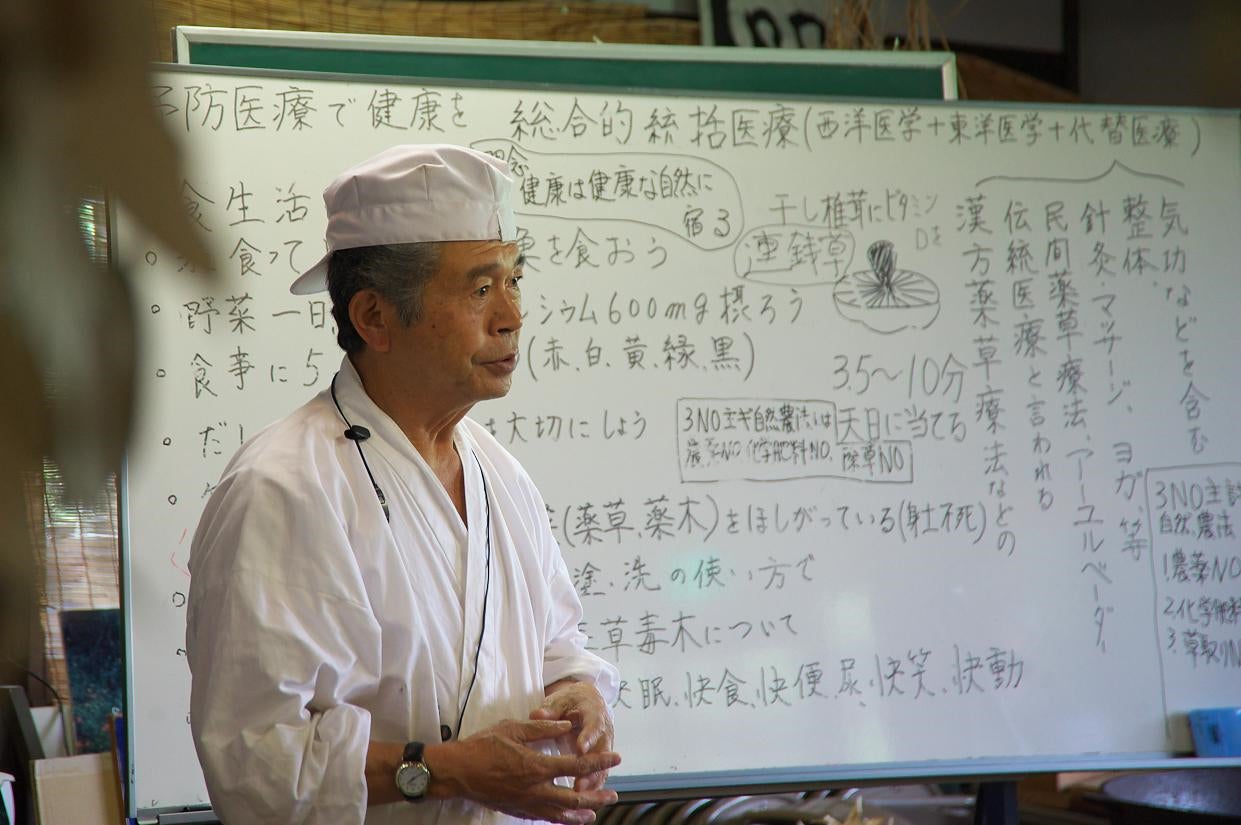 予防医療で健康を 総合的統括医療(西洋医学+東洋医学+代替医療)
食生活
健康は健康な自然に
宿る
食って
魚を食おう
野菜一日
シウム600mg摂ろう
食事に5
(赤、白、黄、緑、黒)
を大切にしよう
(薬草、薬木)をほしがっている(肚不死)
塗、洗の使い方で
草毒木について
眠、快食、快便、尿、快笑、快動
干し椎茸にビタミン
Dを
連銭草
3.5〜10分
天日に当てる
3NO主ギ自然農法は
農薬NO 化学肥料NO、除草NO
気功などを含む
整体、
針灸・マッサージ、ヨガ、等
民間薬草療法、アーユルベーダー、
伝統医療と言われる
漢方薬草療法などの
3NO主
自然農法
1.農薬NO
2.化学肥料
3.草取りN